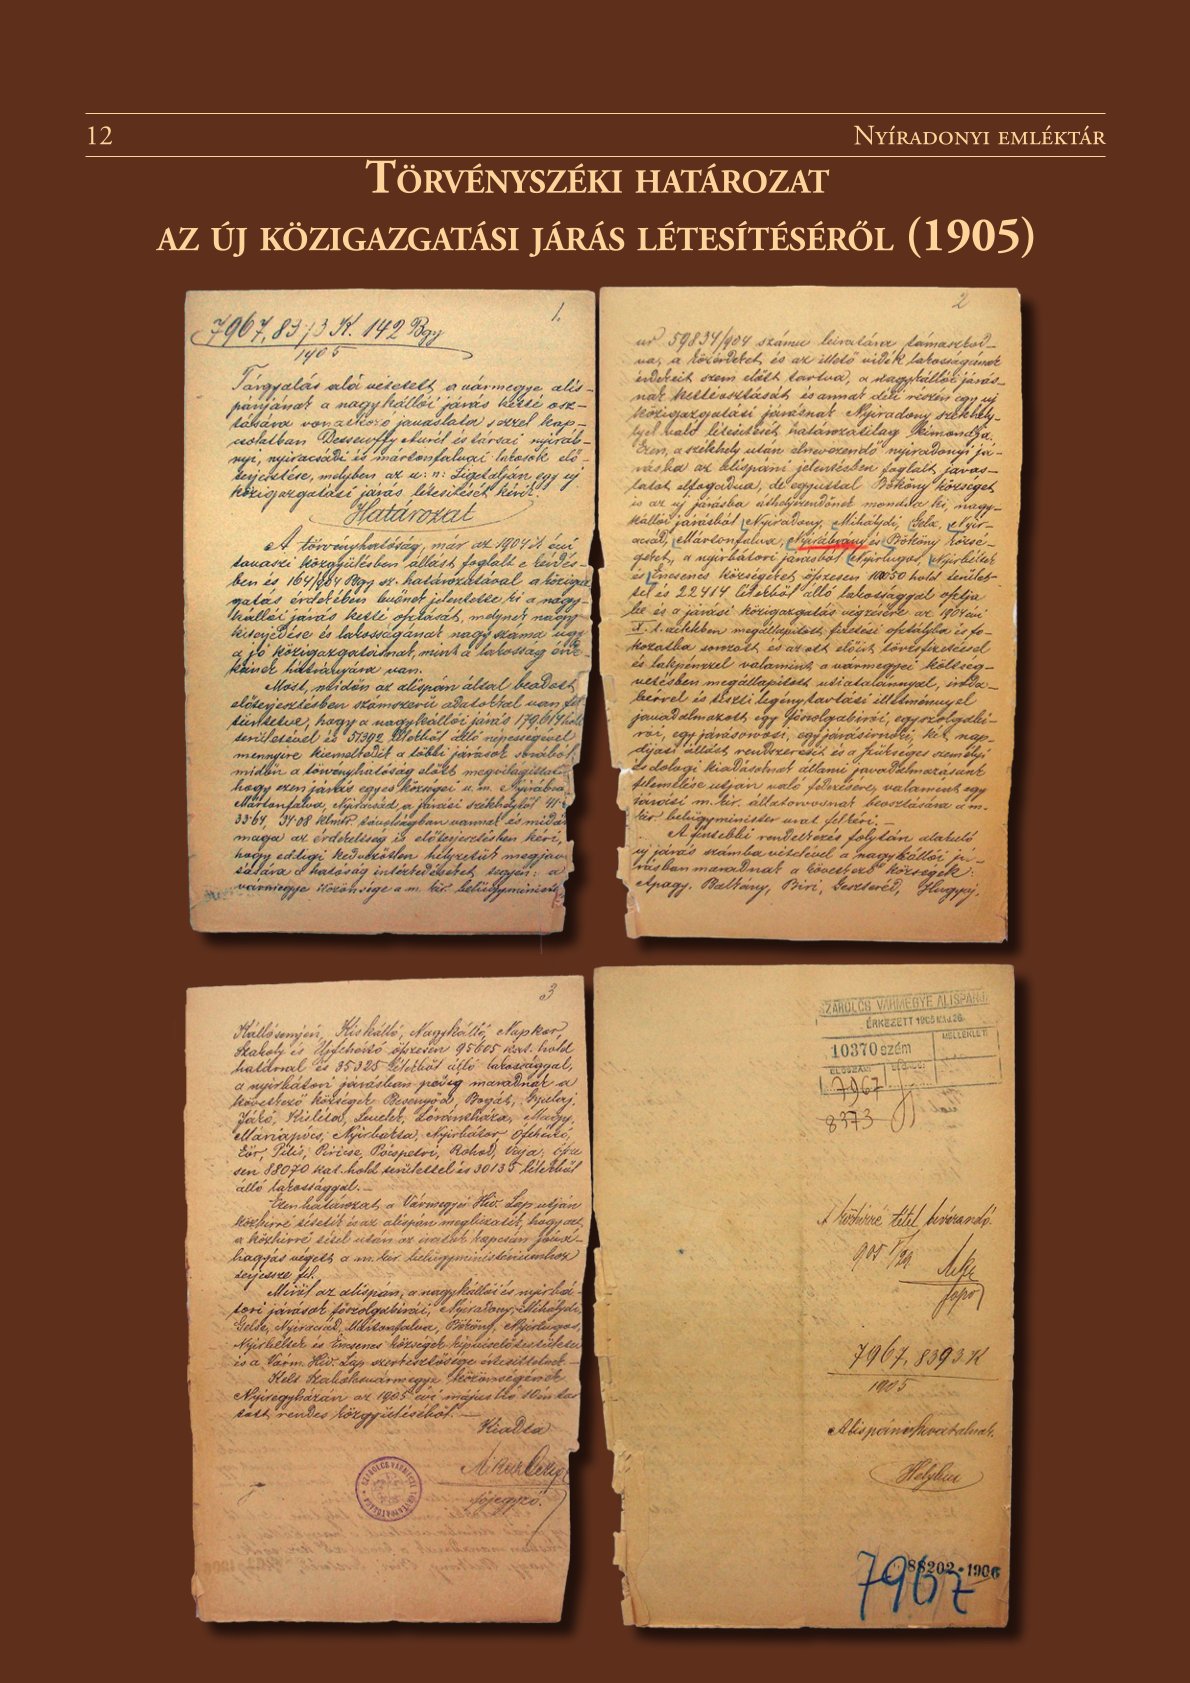 12
Nyíradonyi emléktár
Törvényszéki határozat
az új közigazgatási járás létesítéséről (1905)
1.
7967, 8373 K. 142 Bgy
1905
Tárgyalás alá vétetett a vármegye alis-
pánjának a nagykállói járás ketté osz-
tására vonatkozó javaslata s ezzel kap-
csolatban Dessewffy Aurél és társai nyiráb-
nyi, nyiracsádi és mártonfalvai lakosok elő-
terjesztése, melyben az u: n: Ligetalján egy új
közigazgatási járás létesitését kérik.
Határozat
A törvényhatóság, már az 1904 ik évi
tavaszi közgyülésben állást foglalt e kérdés-
ben és 164/904 Bgy sz. határozatával a köziga
gatás érdekében levőnek jelentette ki a nagy-
kállói járás ketté osztását, melynek nagy
kiterjedése és lakosságának nagy száma ugy
a jó közigazgatásnak, mint a lakosság érde
keinek hátrányára van.
Most, midőn az alispán által beadott
előterjesztésben számszerü adatokkal van fel
tüntetve, hogy a nagykállói járás 179614 hold
területével és 51392 lélekből álló népességével
mennyire kiemelkedik a többi járások sorából
midőn a törvényhatóság előtt megvilágittatik
hogy ezen járás egyes községei u. m. Nyirábrá
Mártonfalva, Nyiracsád, a járási székhelytől 41.
33.64, 34.08 klmtr. távolságban vannak és midőn
maga az érdekeltség is előterjesztésben kéri,
hogy eddigi kedvezőtlen helyzetük megjav
sára a hatóság intézkedéseket tegyen: a
vármegye közönsége a m. kir. belügyminister
2
ur 59834/904 számu leiratára támaszkod-
va, a közérdeket és az illető vidék lakosságának
érdekeit szem előtt tartva, a nagykállói járás-
nak kettéosztását és annak déli részén egy új
közigazgatási járásnak Nyiradony székhely-
lyel való létesitését határozatilag kimondja.
Ezen, a székhely után elnevezendő nyiradonyi já-
rásba az alispáni jelentésben foglalt javas-
latot elfogadva, de egyuttal Bököny községet
is az új járásba áthelyezendőnek mondva ki, nagy-
kállói járásból Nyiradony, Mihálydi, Gelse, Nyir-
acsád, Mártonfalva, Nyirábrány és Bököny közsé-
geket, a nyirbátori járásból Nyirlugos, Nyirbéltek
és Encsencs községeket összesen 10050 hold terület-
tel és 22414 lélekből álló lakossággal osztja
be és a járási közigazgatás végzésére az 1904 évi
X. t. cikkben megállapitott fizetési osztályba és fo-
kozatba sorozott és az ott előirt törzsfizetéssel
és lakpénzzel valamint a vármegyei költség-
vetésben megállapitott utiátalánnyal, iroda-
bérrel és tiszti legénytartási illetménynyel
javadalmazott egy főszolgabirói, egy szolgabi-
rói, egy járásorvosi, egy járásirnoki, két nap-
dijasi állást rendszeresit és a szükséges személyi
és dologi kiadásoknak állami javadalmazásunk
felemelése utján való fedezésére, valamint egy
járási m. kir. állatorvosnak beosztására a m.
kir belügyminister urat felkéri. —
A fentebbi rendelkezés folytán alakuló
új járás számba vételével a nagykállói já-
rásban maradnak a következő községek:
Apagy, Balkány, Biri, Geszteréd, Hugyaj,
3
Kállósemjén, Kiskálló, Nagykálló, Napkor,
Szakoly és Ujfehértó összesen 95605 kat. hold
határral és 35325 lélekből álló lakossággal,
a nyirbátori járásban pedig maradnak a
következő községek Besenyőd, Bogát, Gyulaj,
Jákó, Kisléta, Levelek, Lórántháza, Magy,
Máriapócs, Nyirbakta, Nyirbátor, Ófehértó,
Eőr, Pilis, Piricse, Pócspetri, Rohod, Vaja, össze
sen 88070 kat. hold területtel és 30135 lélekből
álló lakossággal. —
Ezen határozat a Vármegyei Hiv. Lap utján
közhirré tétetik és az alispán megbizatik, hogy azt,
a közhirré tétel után az iratok kapcsán jóvá-
hagyás végett a m. kir. belügyministeriumhoz
terjessze fel.
Miről az alispán, a nagykállói és nyirbá-
tori járások főszolgabirái, Nyiradony, Mihálydi,
Gelse, Nyiracsád, Mártonfalva, Bököny, Nyirlugos,
Nyirbéltek és Encsencs községek képviselőtestületei
és a Várm. Hiv. Lap szerkesztősége értesittetnek. —
Kelt Szabolcsvármegye közönségének
Nyiregyházán az 1905 évi május hó 10én tar
tott rendes közgyüléséből. —
Kiadta
főjegyző.
SZABOLCS VÁRMEGYE ALISPÁNJ
ÉRKEZETT 1905 MÁJ 26.
10370 szám
MELLÉKLET
ELŐSZÁM
7967
8373
A közhirré tétel bevárandó.
905 V/29
7967, 8393 K
1905
Alispáni hivatalnak
Helyben
88202 · 1906
7967